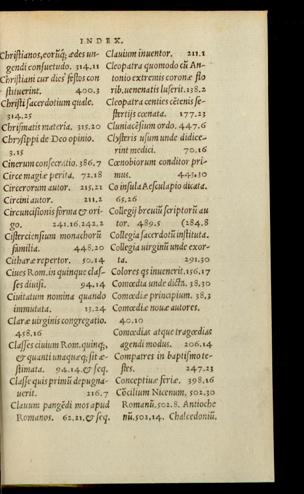 INDEX.
Christianos, eorūq; ædes un-
gendi consuetudo. 314.11
Christiani cur dies festos con
stituerint. 400.3
Christi sacerdotium quale.
314.25
Chrismatis materia. 315.20
Chrysippi de Deo opinio.
3.15
Cinerum consecratio. 386.7
Circe magiæ perita. 72.18
Circerorum autor. 215.21
Circini autor. 211.2
Circuncisionis forma & ori-
go. 241.16.242.2
Cisterciensium monachorū
familia. 448.20
Citharæ repertor. 50.14
Ciues Rom. in quinque clas-
ses diuisi. 94.14
Ciuitatum nomina quando
immutata. 13.24
Claræ uirginis congregatio.
458.16
Classes ciuium Rom. quinq;,
& quanti unaquæq; sit æ-
stimata. 94.14. & seq.
Classe quis primū depugna-
uerit. 216.7
Clauum pangēdi mos apud
Romanos. 62.21. & seq.
Clauium inuentor. 211.1
Cleopatra quomodo cū An-
tonio extremis coronæ flo
rib. uenenatis luserit. 138.2
Cleopatra centies cētenis se-
stertijs cœnata. 177.23
Cluniacēsium ordo. 447.6
Clysteris usum unde didice-
rint medici. 70.16
Cœnobiorum conditor pri-
mus. 441.30
Co insula Aesculapio dicata.
65.26
Collegij breuiū scriptorū au
tor. 489.5 (284.8
Collegia sacerdotū instituta.
Collegia uirginū unde exor-
ta. 291.30
Colores qs inuenerit. 156.17
Comœdia unde dicta. 38.30
Comœdiæ principium. 38.3
Comœdiæ nouæ autores.
40.10
Comœdias atque tragœdias
agendi modus. 206.14
Compatres in baptismo te-
stes. 247.23
Conceptiuæ feriæ. 398.16
Cōcilium Nicenum. 502.30
Romanū. 502.8. Antioche
nū. 502.14. Chalcedoniū.